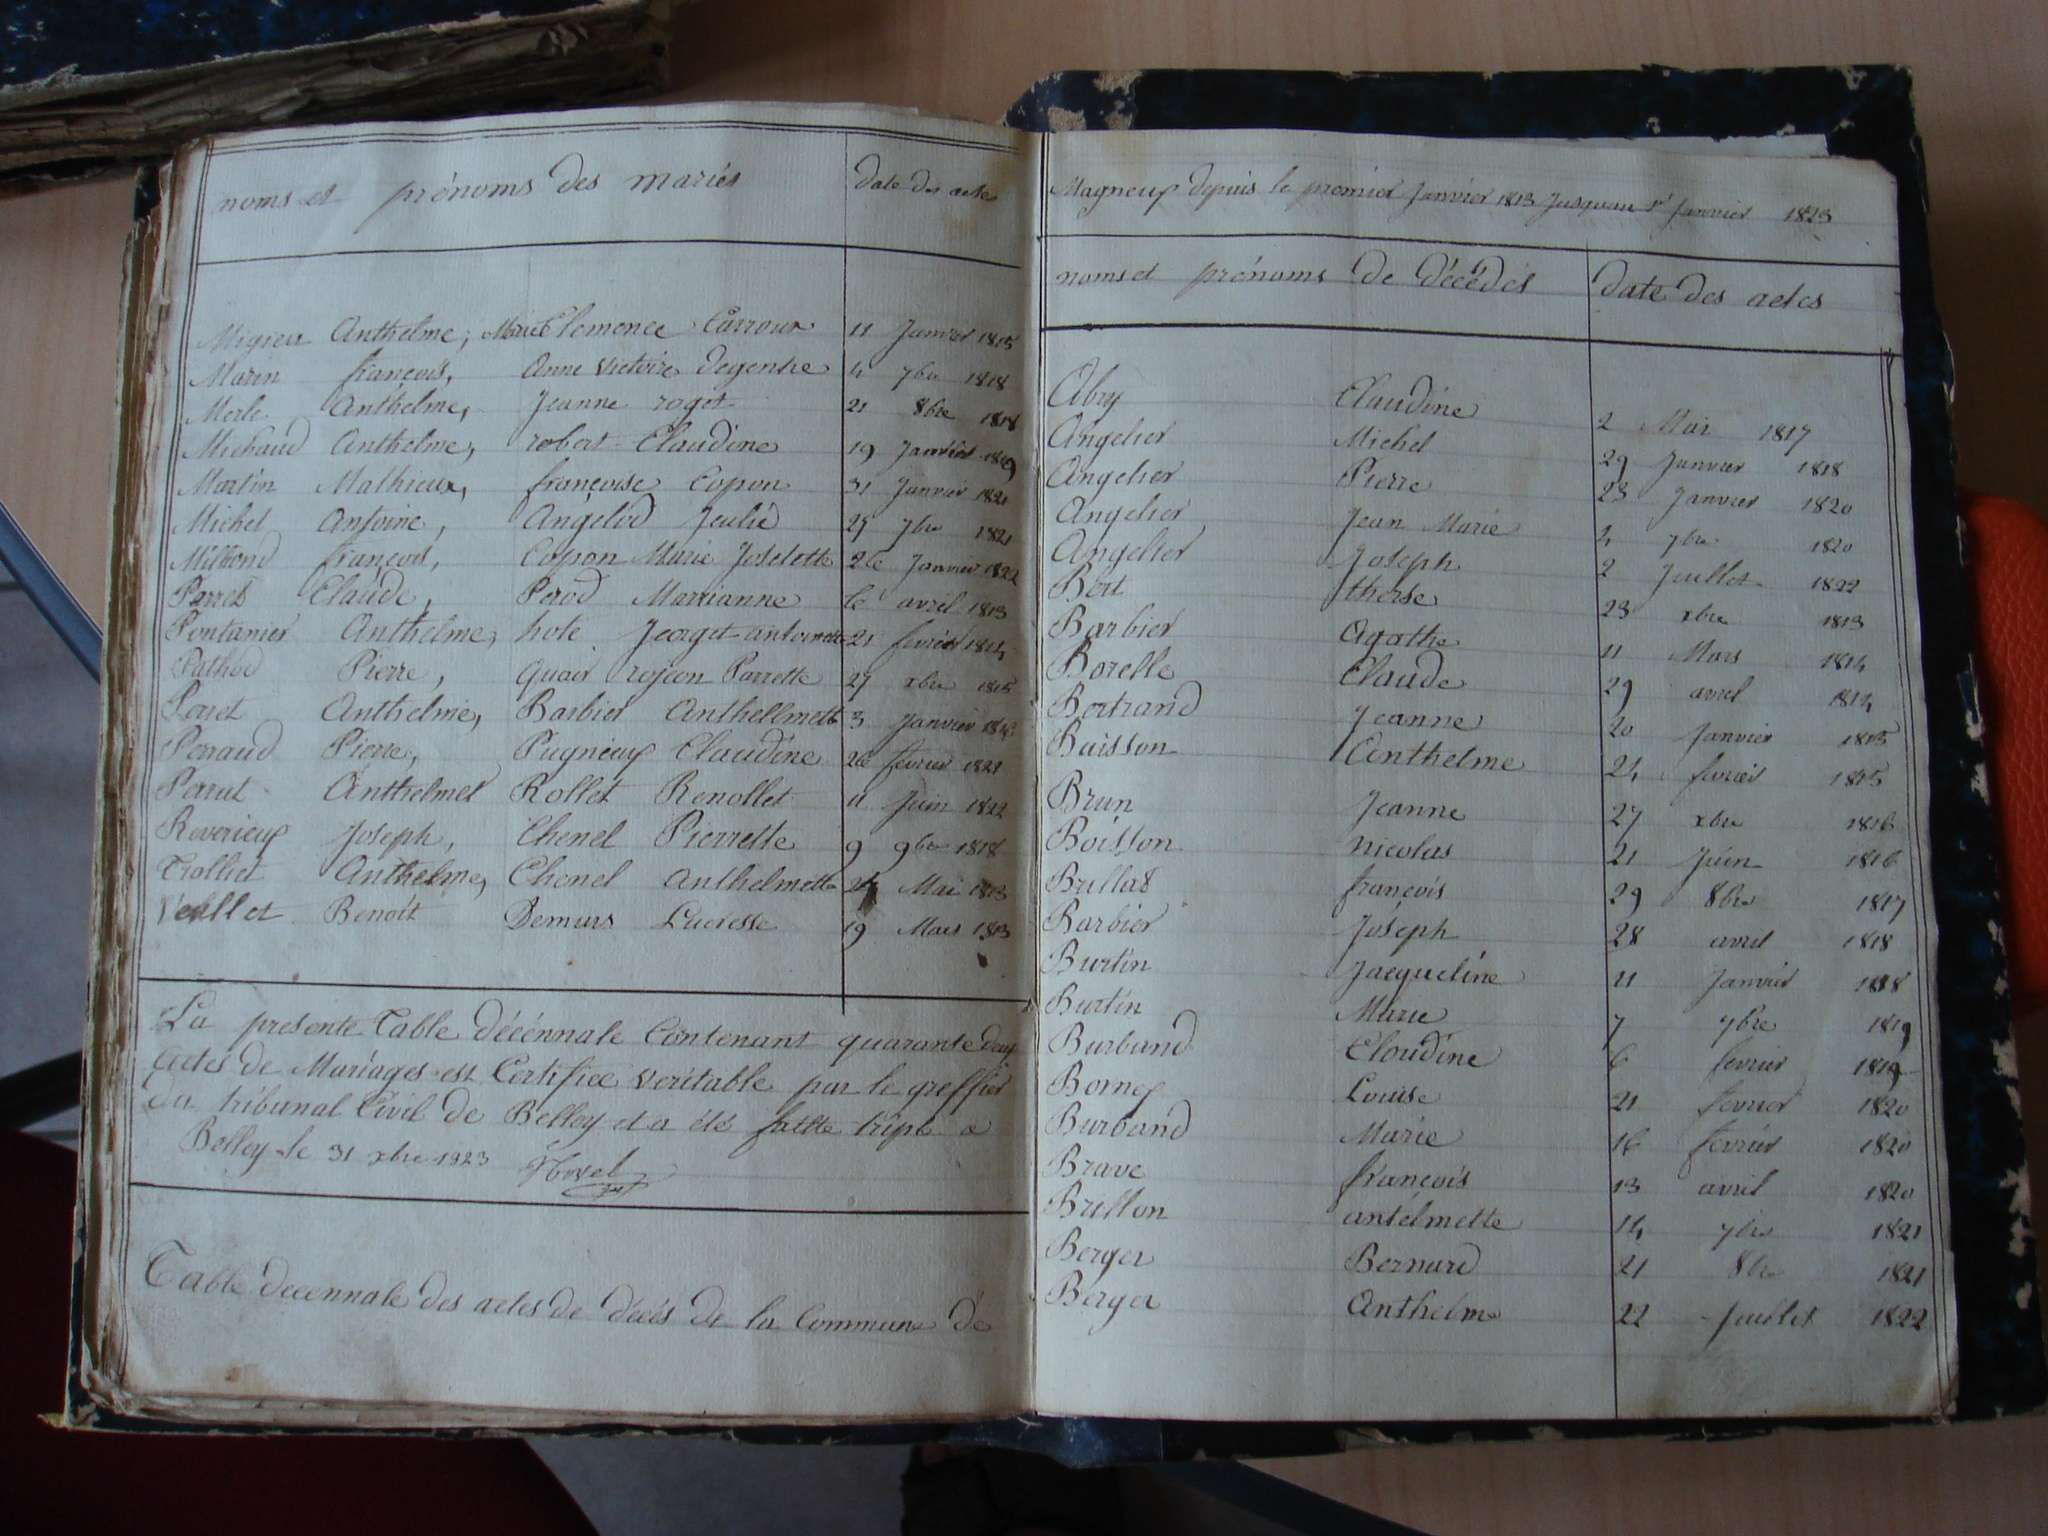 noms et prénoms des mariés date des actes
Migieu Anthelme, Marie Clemence Carroux 11 Janvier 1815
Marin françois, Anne Victoire Degenke 4 7bre 1818
Merle Anthelme, Jeanne roget 21 8bre 1818
Michaud Anthelme, robert Claudine 19 Janvier 1819
Martin Mathieux, françoise Copon 31 Janvier 1821
Michel Antoine, Angelod Julie 27 7bre 1821
Milliond françois, Copon Marie Joselette 26 Janvier 1822
Perret Claude, Perod Marrianne 6 avril 1813
Pontanier Anthelme, hote Jeorget antoinette 21 fevrier 1814
Pathod Pierre, Quair Parrette 27 xbre 1815
Peret Anthelme, Barbier Anthellmette 3 Janvier
Perraud Pierre, Pugnieux Claudine 26 fevrier 1821
Perrut Anthelmel Rollet Renollet 11 Juin 1822
Reverieux Joseph, Chenel Pierrette 9 9bre 1818
Trolliet Anthelme, Chenel Anthelmette Mai 1813
Veullet Benoit Demurs Lucresse 19 Mars 1813
La presente Table décénnale Contenant quarante deux
actes de Mariages est Certifiee veritable par le greffier
du tribunal Civil de Belley et a été faitte triple a
Belley le 31 xbre 1923
Table decennale des actes de décès de la Commune de
Magneux depuis le premier Janvier 1813 Jusquau 1r Janvier 1823
noms et prénoms de décédés date des actes
Abry Claudine 2 Mai 1817
Angelier Michel 29 Janvier 1818
Angelier Pierre 23 Janvier 1820
Angelier Jean Marie 4 7bre 1820
Angelier Joseph 2 Juillet 1822
Bert therse 23 xbre 1813
Barbier Agathe 11 Mars 1814
Borelle Claude 29 avril 1814
Bertrand Jeanne 20 Janvier 1815
Buisson Anthelme 24 fevrier 1815
Brun Jeanne 27 xbre 1816
Boisson Nicolas 21 Juin 1816
Brillat françois 29 8bre 1817
Barbier Joseph 28 avril 1818
Burtin Jacqueline 11 Janvier 1818
Burtin Marie 7 7bre 1819
Burband Claudine 6 fevrier 1819
Bornex Louise 21 fevrier 1820
Burband Marie 16 fevrier 1820
Brave françois 13 avril 1820
Brillon antelmette 14 7bre 1821
Berger Bernard 21 8bre 1821
Berger Anthelme 22 Juillet 1822